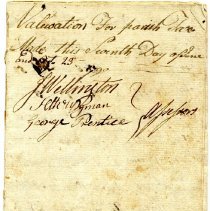 Valuation For parish Tax
Made this Seventh Day of June
and
J Wellington
Wyman
George Prentice
Assessors